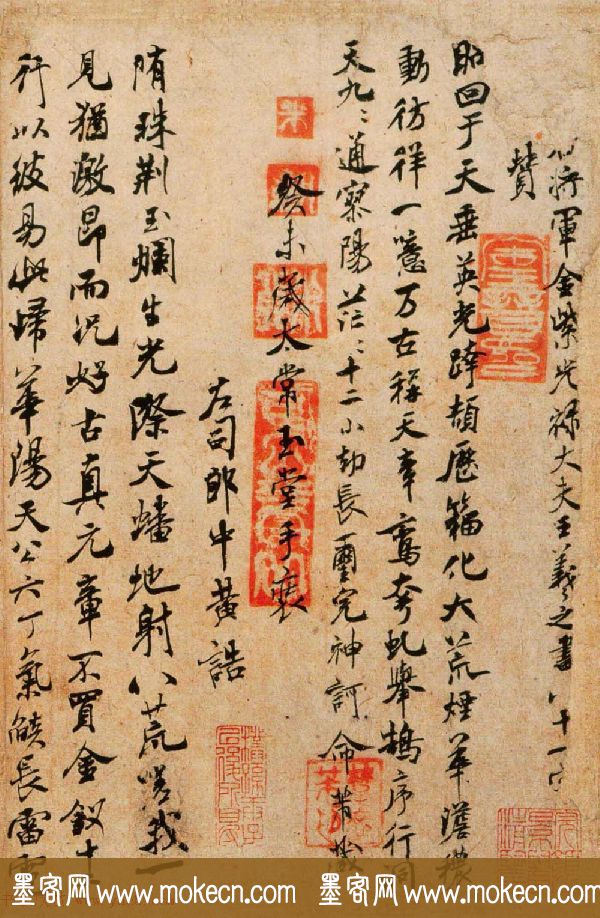 將軍金紫光祿大夫王羲之書八十一字
贊
昭回于天垂英光跨頡歷籀化大荒煙華澹穠
動彷徉一噫万古稱天章鸞夸虬舉鵠序行洞
天九〻通寥陽茫〻十二小劫長璽完神訶命芾藏
癸未歲太常玉堂手裝
左司郎中黃誥
隋珠荆玉爛生光際天蟠地射八荒嗟我一
見猶激昂而況好古真元章不買金釵十
行以彼易此歸華陽天公六丁氣燄長雷電
墨客网www.mokecn.com 墨客网www.mokecn.com